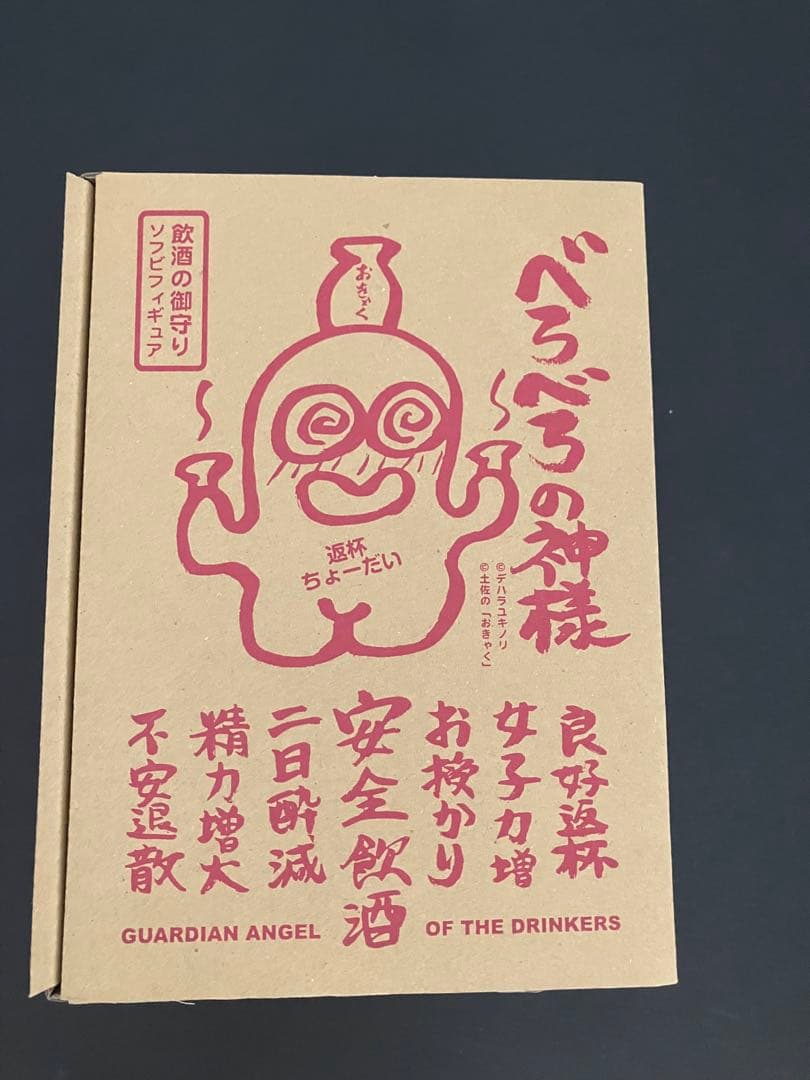 べろべろの神様
飲酒の御守り
ソフビフィギュア
おきゃく
返杯
ちょーだい
©デハラユキノリ
©土佐の「おきゃく」
良好返杯
女子力増
お授かり
安全飲酒
二日酔減
精力増大
不安退散
GUARDIAN ANGEL OF THE DRINKERS